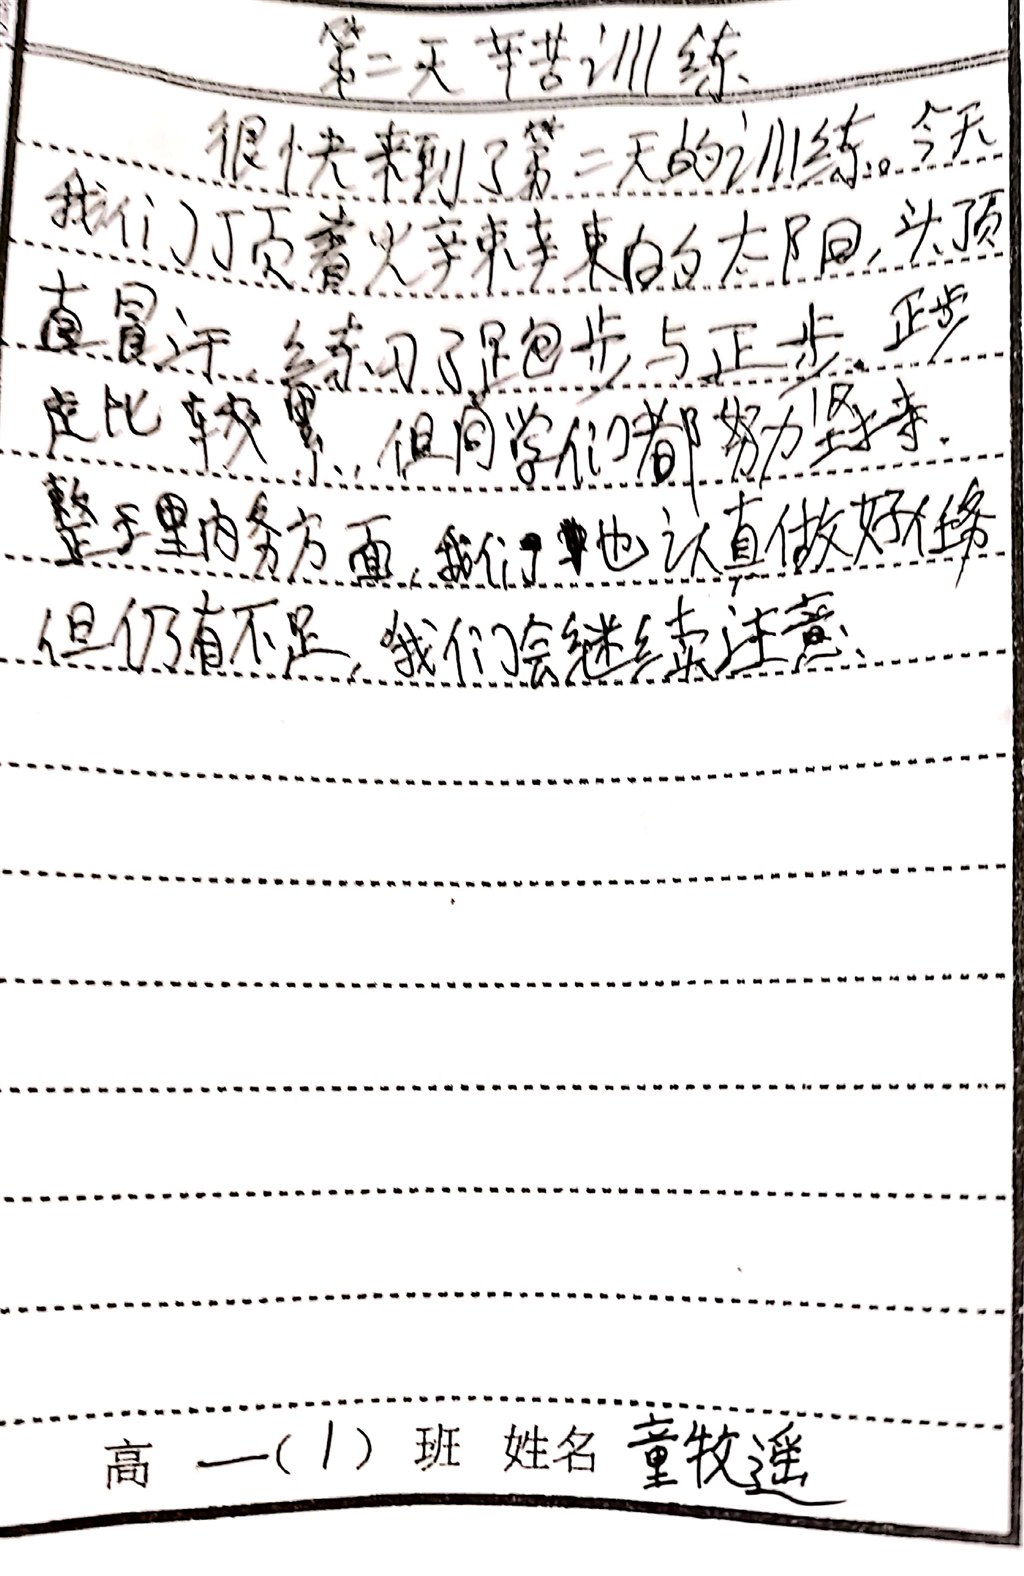 第二天 辛苦训练
很快来到了第二天的训练。今天
我们顶着火辣辣的太阳，头顶
直冒汗，练习了跑步与正步。正步
走比较累，但同学们都努力坚持。
整理内务方面，我们也认真做好任务
但仍有不足，我们会继续注意。
高一（1）班 姓名 童牧遥